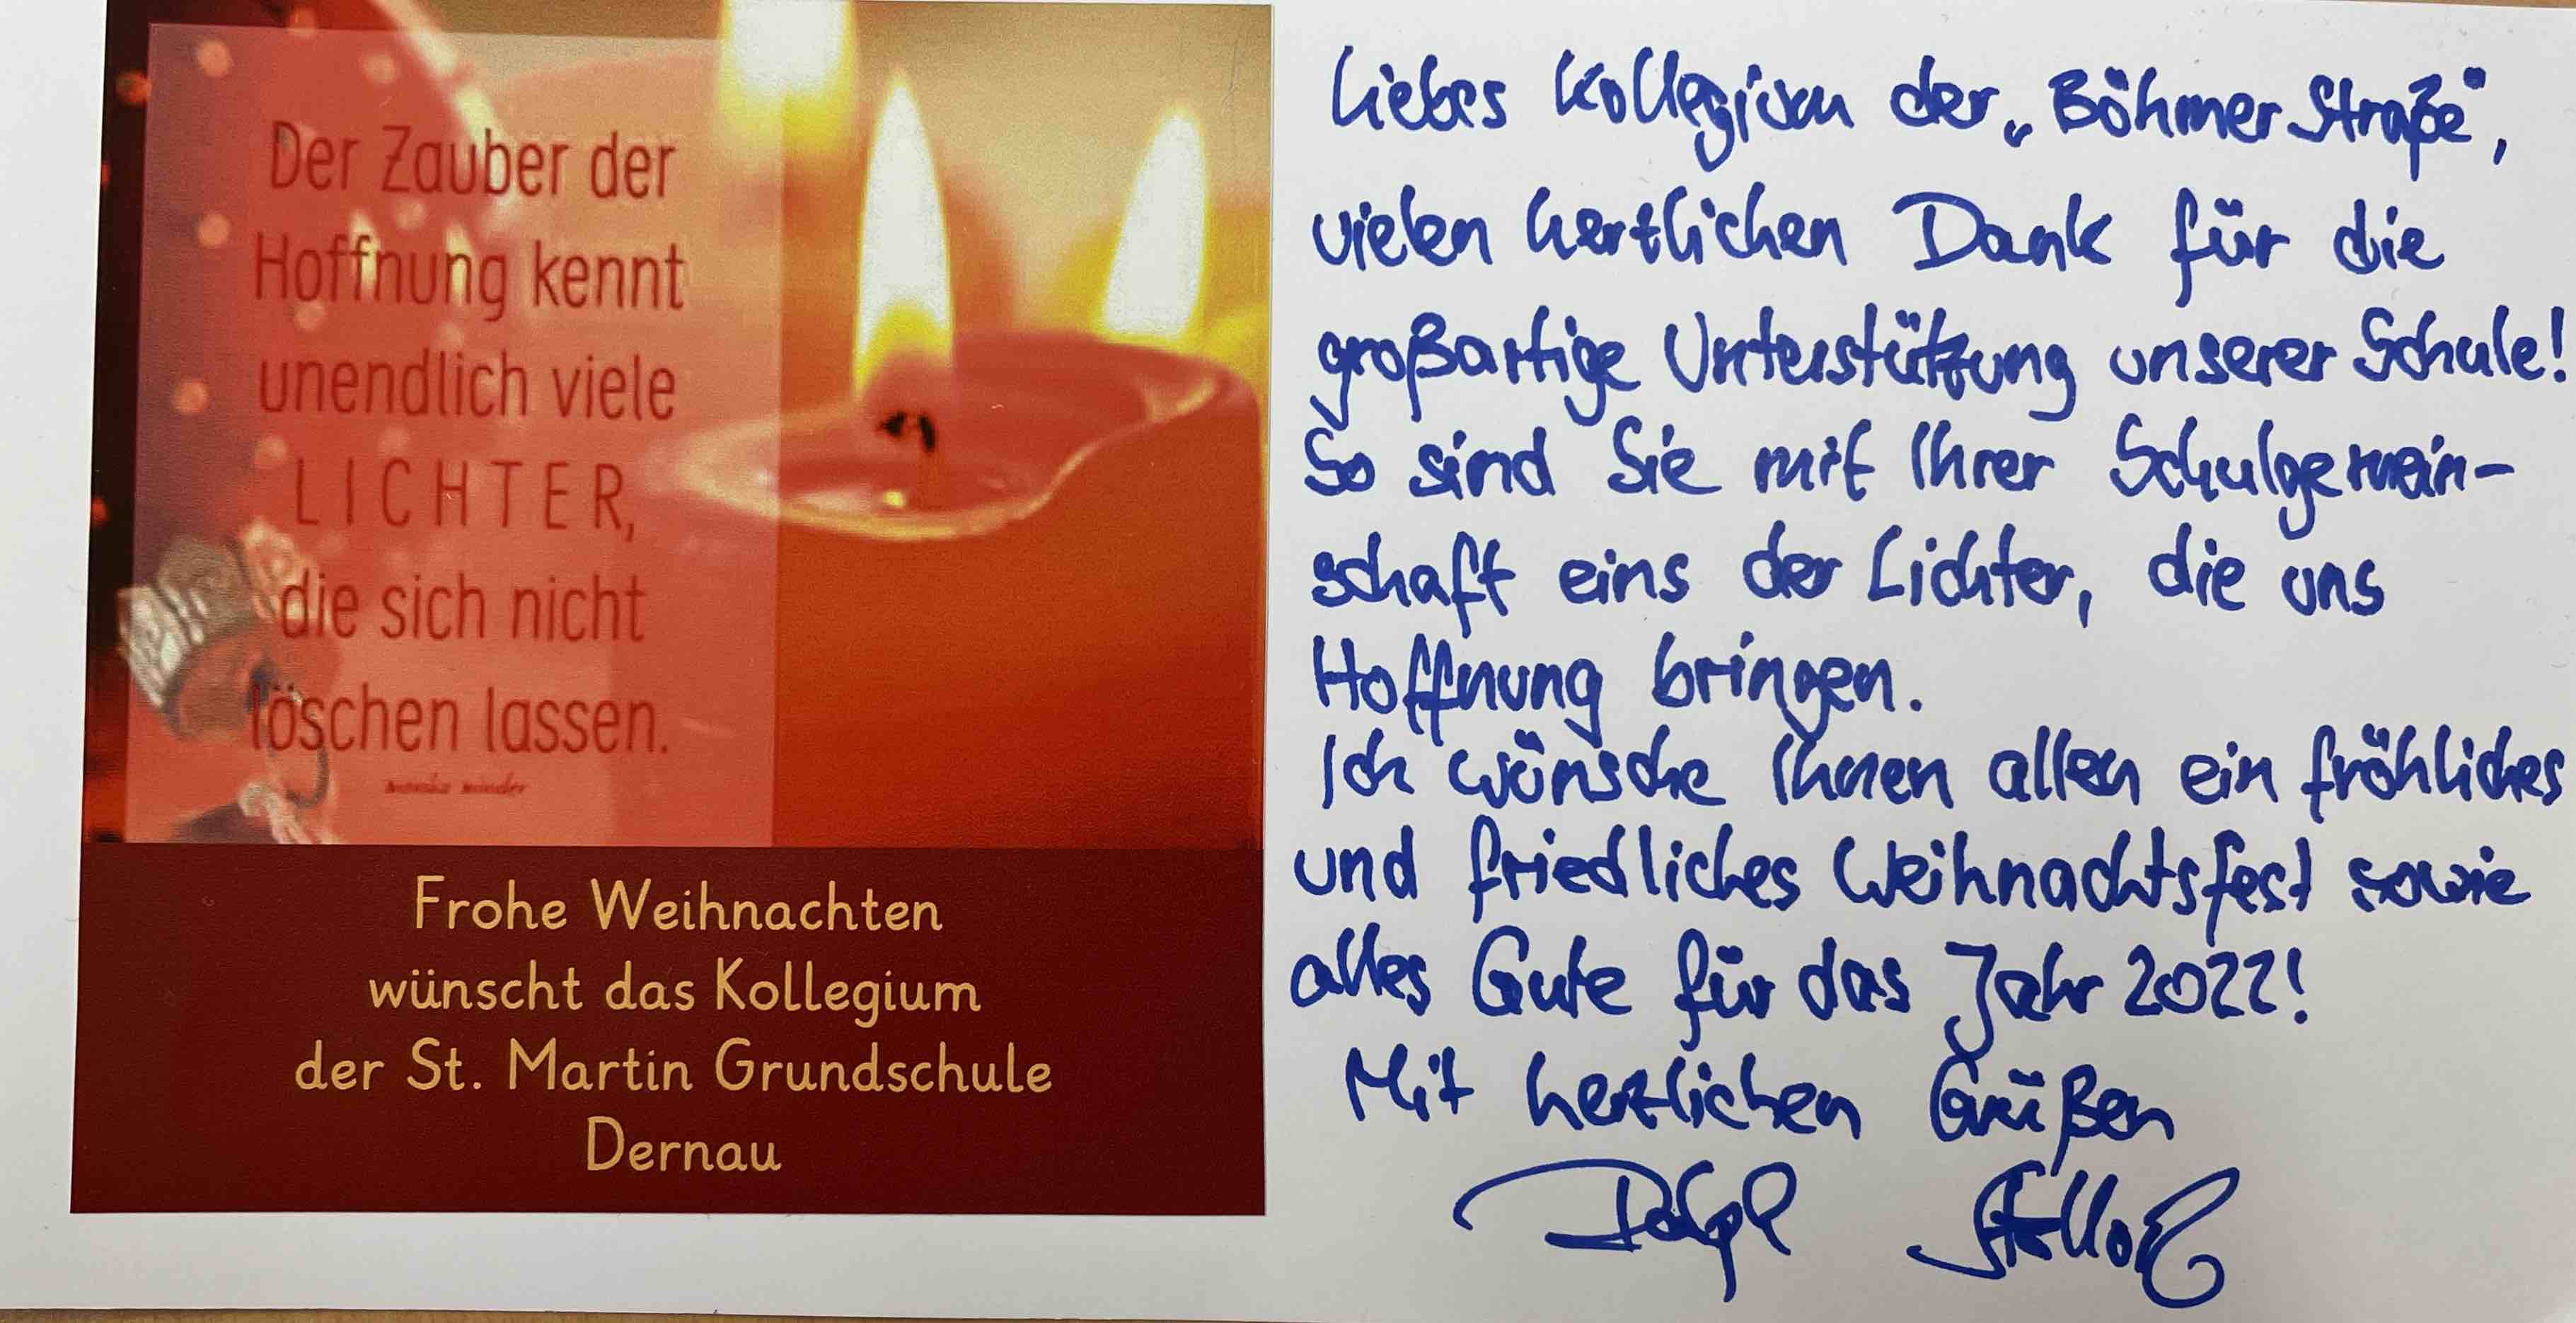 Der Zauber der
Hoffnung kennt
unendlich viele
LICHTER,
die sich nicht
löschen lassen.
monika minder
Frohe Weihnachten
wünscht das Kollegium
der St. Martin Grundschule
Dernau
Liebes Kollegium der „Böhmer Straße",
vielen herzlichen Dank für die
großartige Unterstützung unserer Schule!
So sind Sie mit Ihrer Schulgemein-
schaft eins der Lichter, die uns
Hoffnung bringen.
Ich wünsche Ihnen allen ein fröhliches
und friedliches Weihnachtsfest sowie
alles Gute für das Jahr 2022!
Mit herzlichen Grüßen